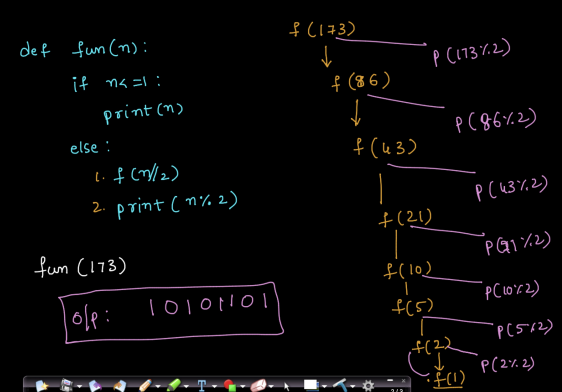 def fun(n):
if n<=1:
print(n)
else:
1. f(n//2)
2. print(n%2)
fun(173)
o/p: 10101101
f(173)
p(173%2)
f(86)
p(86%2)
f(43)
p(43%2)
f(21)
p(21%2)
f(10)
p(10%2)
f(5)
p(5%2)
f(2)
p(2%2)
f(1)